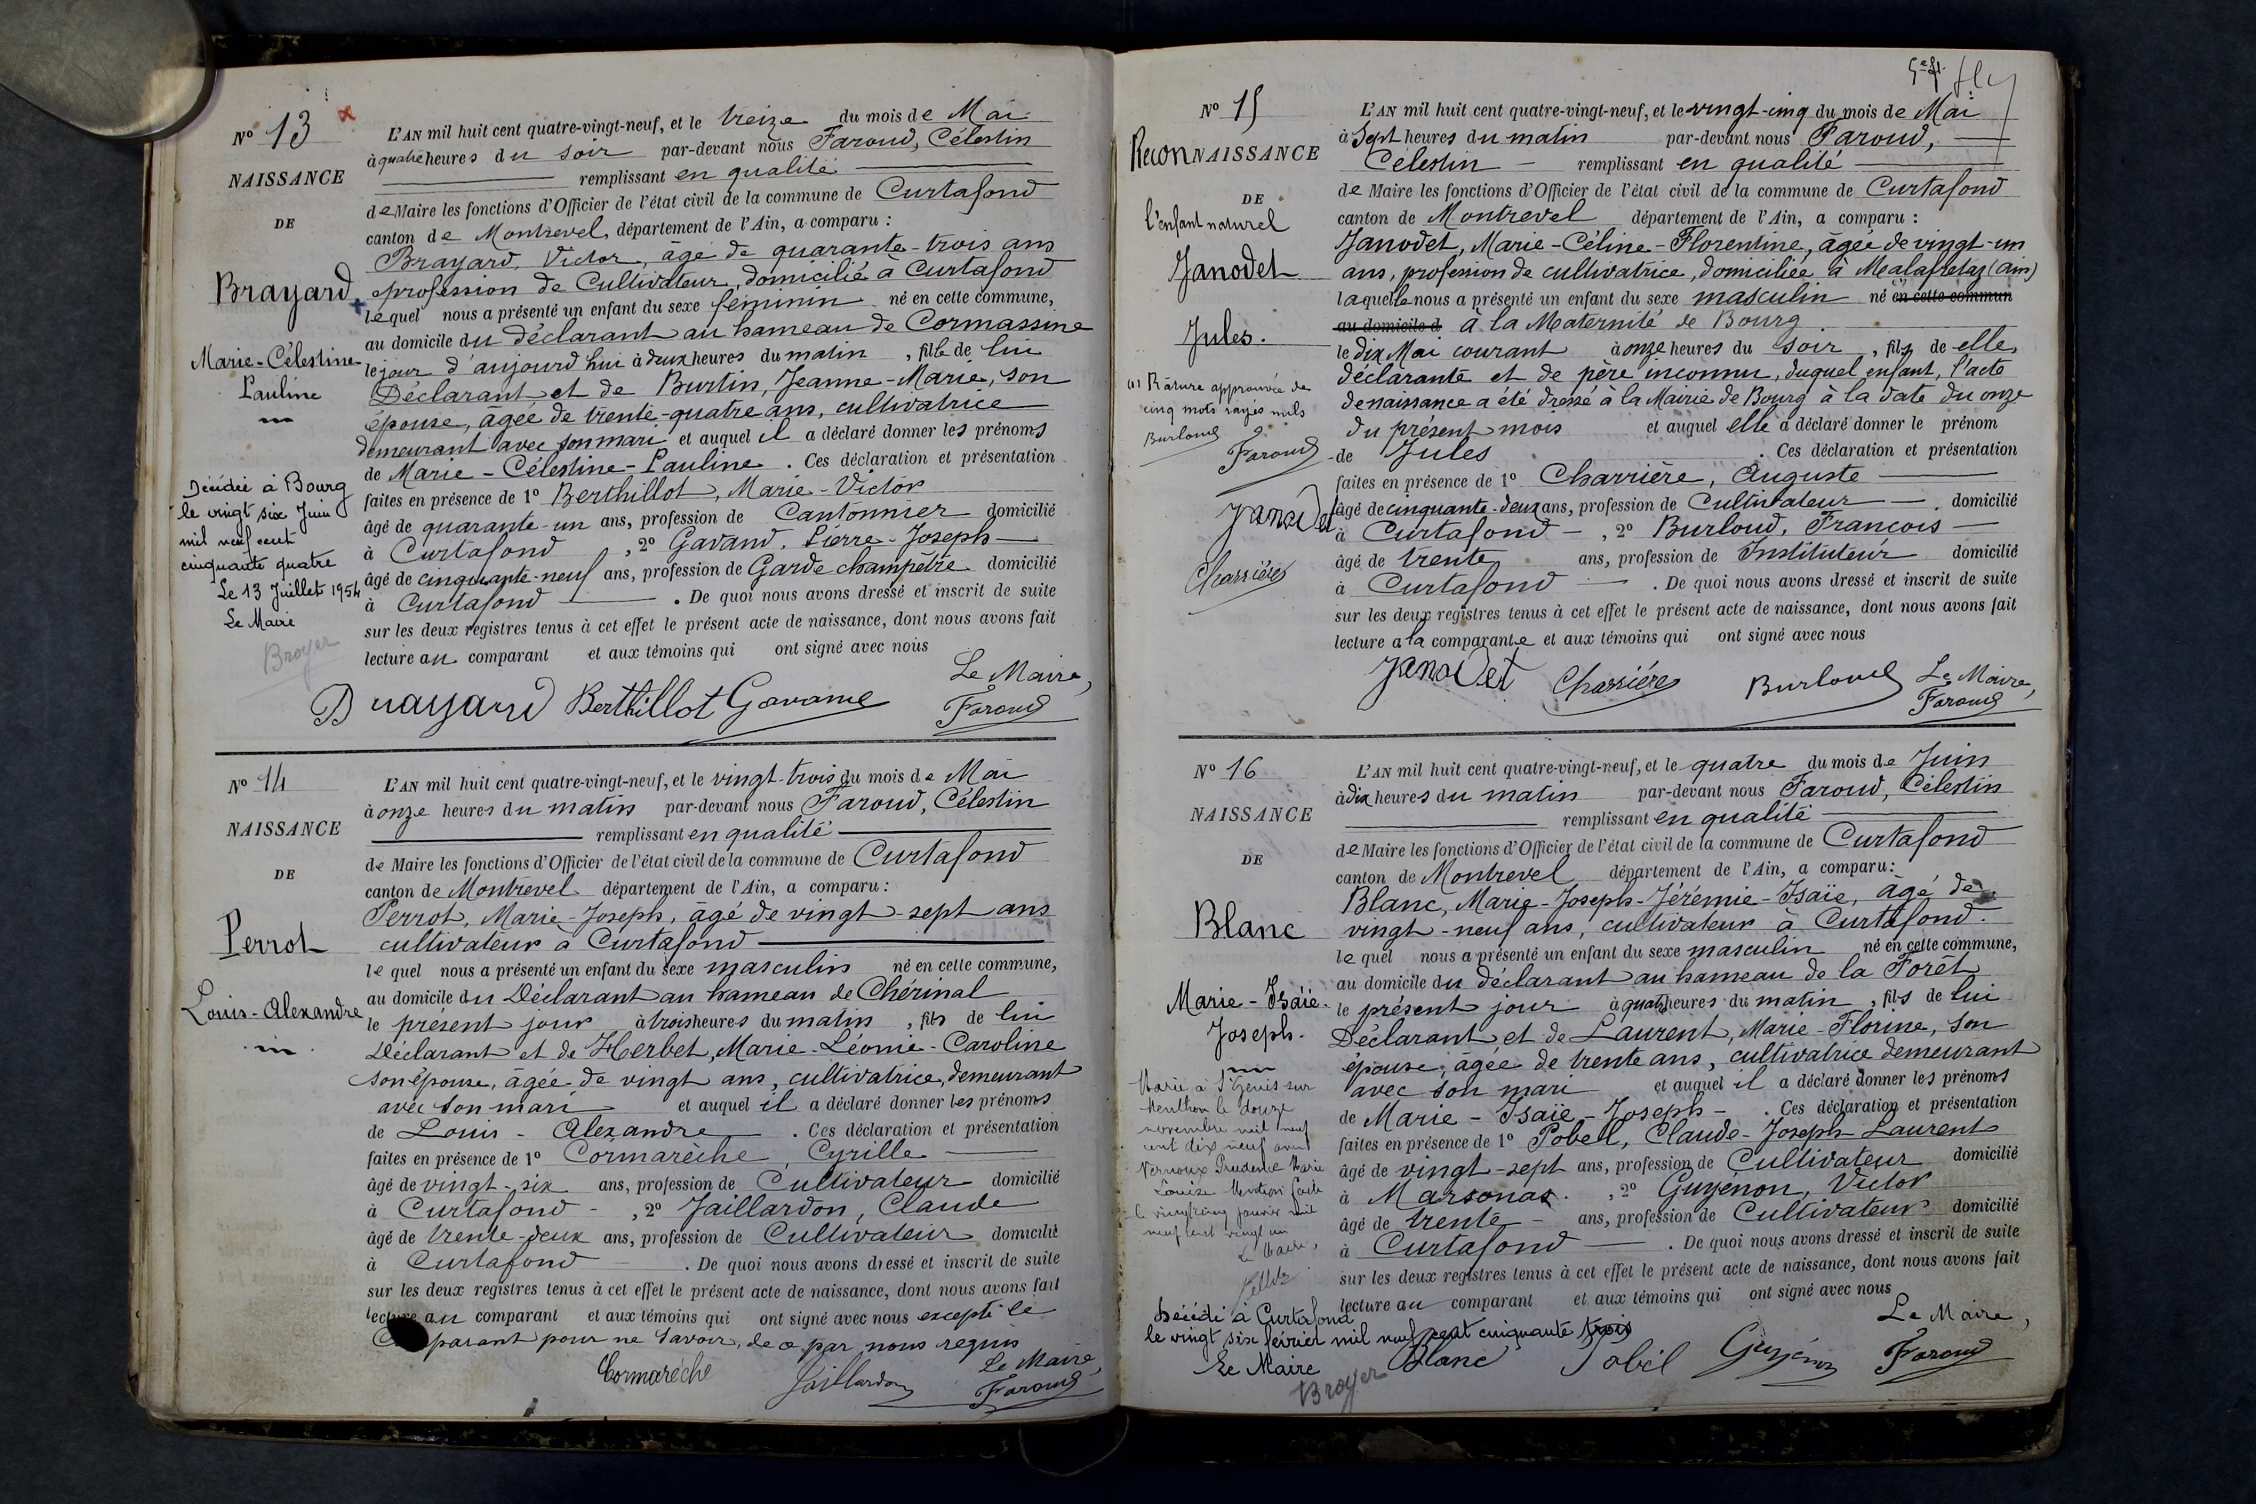 N° 13
NAISSANCE
DE
Brayard
Marie-Célestine
Pauline
Décédée à Bourg
le vingt six Juin
mil neuf cent
cinquante quatre
Le 13 Juillet 1954
Le Maire
Broyer
L'AN mil huit cent quatre-vingt-neuf, et le treize du mois de Mai
à quatre heures du soir par-devant nous Faroud, Célestin
remplissant en qualité
de Maire les fonctions d'Officier de l'état civil de la commune de Curtafond
canton de Montrevel, département de l'Ain, a comparu :
Brayard, Victor, âgé de quarante-trois ans
profession de Cultivateur, domicilié à Curtafond
lequel nous a présenté un enfant du sexe féminin né en cette commune,
au domicile du déclarant au hameau de Cormassine
le jour d'aujourd'hui à deux heures du matin, fille de lui
Déclarant et de Burtin, Jeanne-Marie, son
épouse, âgée de trente-quatre ans, cultivatrice
demeurant avec son mari et auquel il a déclaré donner les prénoms
de Marie-Célestine-Pauline. Ces déclaration et présentation
faites en présence de 1° Berthillot, Marie-Victor
âgé de quarante-un ans, profession de Cantonnier domicilié
à Curtafond, 2° Gavand, Pierre-Joseph
âgé de cinquante-neuf ans, profession de Garde champêtre domicilié
à Curtafond. De quoi nous avons dressé et inscrit de suite
sur les deux registres tenus à cet effet le présent acte de naissance, dont nous avons fait
lecture au comparant et aux témoins qui ont signé avec nous
Le Maire,
Brayard Berthillot Gavand Faroud
N° 14
NAISSANCE
DE
Perrot
Louis-Alexandre
L'AN mil huit cent quatre-vingt-neuf, et le vingt-trois du mois de Mai
à onze heures du matin par-devant nous Faroud, Célestin
remplissant en qualité
de Maire les fonctions d'Officier de l'état civil de la commune de Curtafond
canton de Montrevel département de l'Ain, a comparu :
Perrot, Marie-Joseph, âgé de vingt-sept ans
cultivateur à Curtafond
lequel nous a présenté un enfant du sexe masculin né en cette commune,
au domicile du Déclarant au hameau de Chérinal
le présent jour à trois heures du matin, fils de lui
Déclarant et de Herbet, Marie-Léonie-Caroline
son épouse, âgée de vingt ans, cultivatrice, demeurant
avec son mari et auquel il a déclaré donner les prénoms
de Louis-Alexandre. Ces déclaration et présentation
faites en présence de 1° Cormarèche, Cyrille
âgé de vingt-six ans, profession de Cultivateur domicilié
à Curtafond -, 2° Jaillardon, Claude
âgé de trente-deux ans, profession de Cultivateur domicilié
à Curtafond. De quoi nous avons dressé et inscrit de suite
sur les deux registres tenus à cet effet le présent acte de naissance, dont nous avons fait
lecture au comparant et aux témoins qui ont signé avec nous excepté le
Comparant pour ne savoir, de ce par nous requis
Le Maire,
Cormarèche Jaillardon Faroud
5e f.
N° 15
ReconNAISSANCE
DE
l'enfant naturel
Janodet
Jules.
(1) Râture approuvée de
cinq mots rayés nuls
Burloud
Faroud
Janodet
Charrière
L'AN mil huit cent quatre-vingt-neuf, et le vingt-cinq du mois de Mai
à Sept heures du matin par-devant nous Faroud,
Célestin - remplissant en qualité
de Maire les fonctions d'Officier de l'état civil de la commune de Curtafond
canton de Montrevel département de l'Ain, a comparu :
Janodet, Marie-Céline-Florentine, âgée de vingt-un
ans, profession de cultivatrice, domiciliée à Mealafretaz (Ain)
laquelle nous a présenté un enfant du sexe masculin né en cette commun
au domicile d à la Maternité de Bourg
le dix Mai courant à onze heures du soir, fils de elle
déclarante et de père inconnu, duquel enfant, l'acte
de naissance a été dressé à la Mairie de Bourg à la date du onze
du présent mois et auquel elle a déclaré donner le prénom
de Jules. Ces déclaration et présentation
faites en présence de 1° Charrière, Auguste
âgé de cinquante-deux ans, profession de Cultivateur - domicilié
à Curtafond -, 2° Burloud, François
âgé de trente ans, profession de Instituteur domicilié
à Curtafond. De quoi nous avons dressé et inscrit de suite
sur les deux registres tenus à cet effet le présent acte de naissance, dont nous avons fait
lecture a la comparante et aux témoins qui ont signé avec nous
Janodet Charrière Burloud Le Maire,
Faroud
N° 16
NAISSANCE
DE
Blanc
Marie-Isaïe-
Joseph.
Marié à St Genis sur
Menthon le douze
novembre mil neuf
cent dix neuf avec
Vernoux Prudence Marie
Louise Mention faite
le vingt cinq janvier mil
neuf cent vingt un
Le Maire,
Décédé à Curtafond
le vingt six février mil neuf cent cinquante trois
Le Maire
Broyer
L'AN mil huit cent quatre-vingt-neuf, et le quatre du mois de Juin
à dix heures du matin par-devant nous Faroud, Célestin
remplissant en qualité
de Maire les fonctions d'Officier de l'état civil de la commune de Curtafond
canton de Montrevel département de l'Ain, a comparu :
Blanc, Marie-Joseph-Jérémie-Isaïe, âgé de
vingt-neuf ans, cultivateur à Curtafond.
lequel nous a présenté un enfant du sexe masculin né en cette commune,
au domicile du déclarant au hameau de la Forêt
le présent jour à quatre heures du matin, fils de lui
Déclarant et de Laurent, Marie-Florine, son
épouse, âgée de trente ans, cultivatrice demeurant
avec son mari et auquel il a déclaré donner les prénoms
de Marie-Isaïe-Joseph-. Ces déclaration et présentation
faites en présence de 1° Pobel, Claude-Joseph-Laurent
âgé de vingt-sept ans, profession de Cultivateur domicilié
à Marsonas., 2° Guyénon, Victor
âgé de trente - ans, profession de Cultivateur domicilié
à Curtafond. De quoi nous avons dressé et inscrit de suite
sur les deux registres tenus à cet effet le présent acte de naissance, dont nous avons fait
lecture au comparant et aux témoins qui ont signé avec nous
Le Maire,
Blanc Pobel Guyénon Faroud